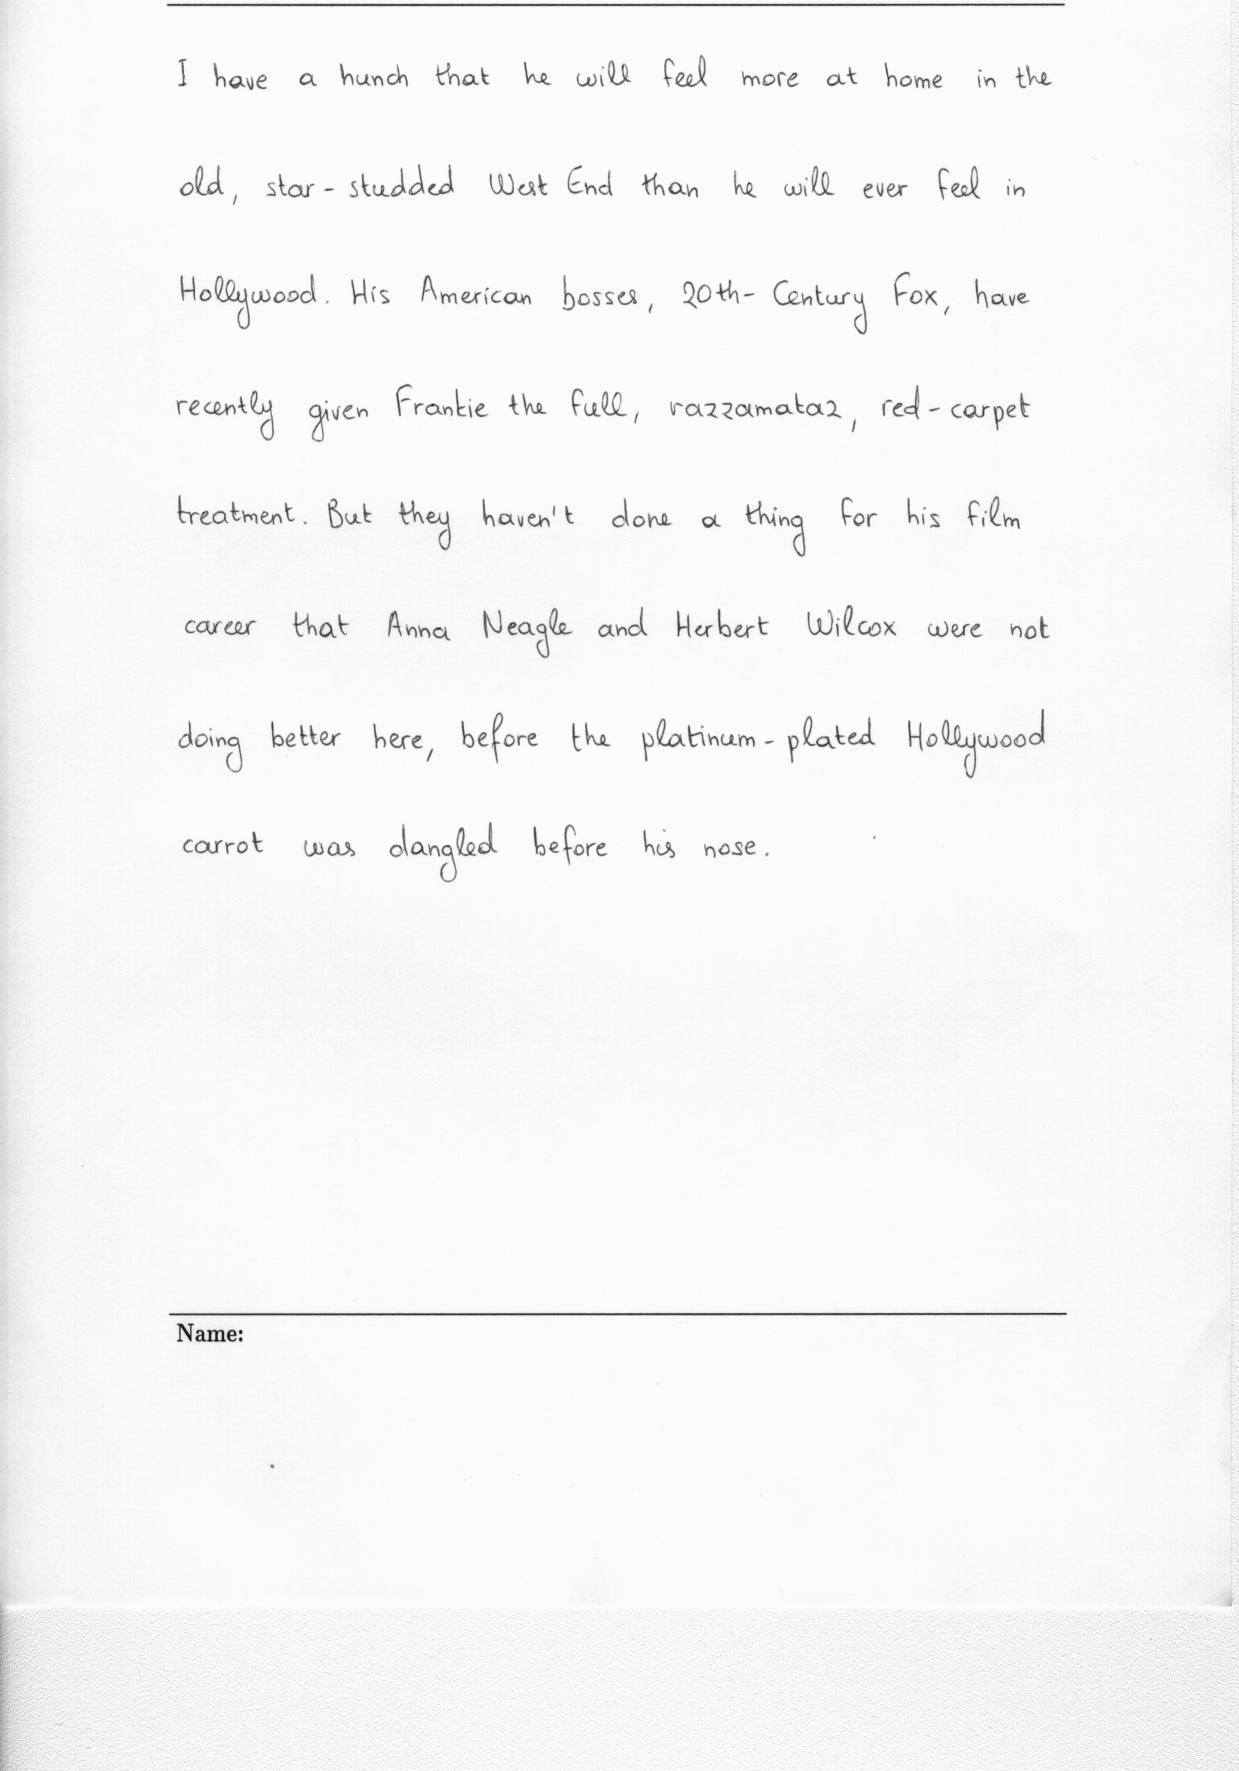 I have a hunch that he will feel more at home in the
old, star-studded West End than he will ever feel in
Hollywood. His American bosses, 20th-Century Fox, have
recently given Frankie the full, razzamataz, red-carpet
treatment. But they haven't done a thing for his film
career that Anna Neagle and Herbert Wilcox were not
doing better here, before the platinum-plated Hollywood
carrot was dangled before his nose.
Name: